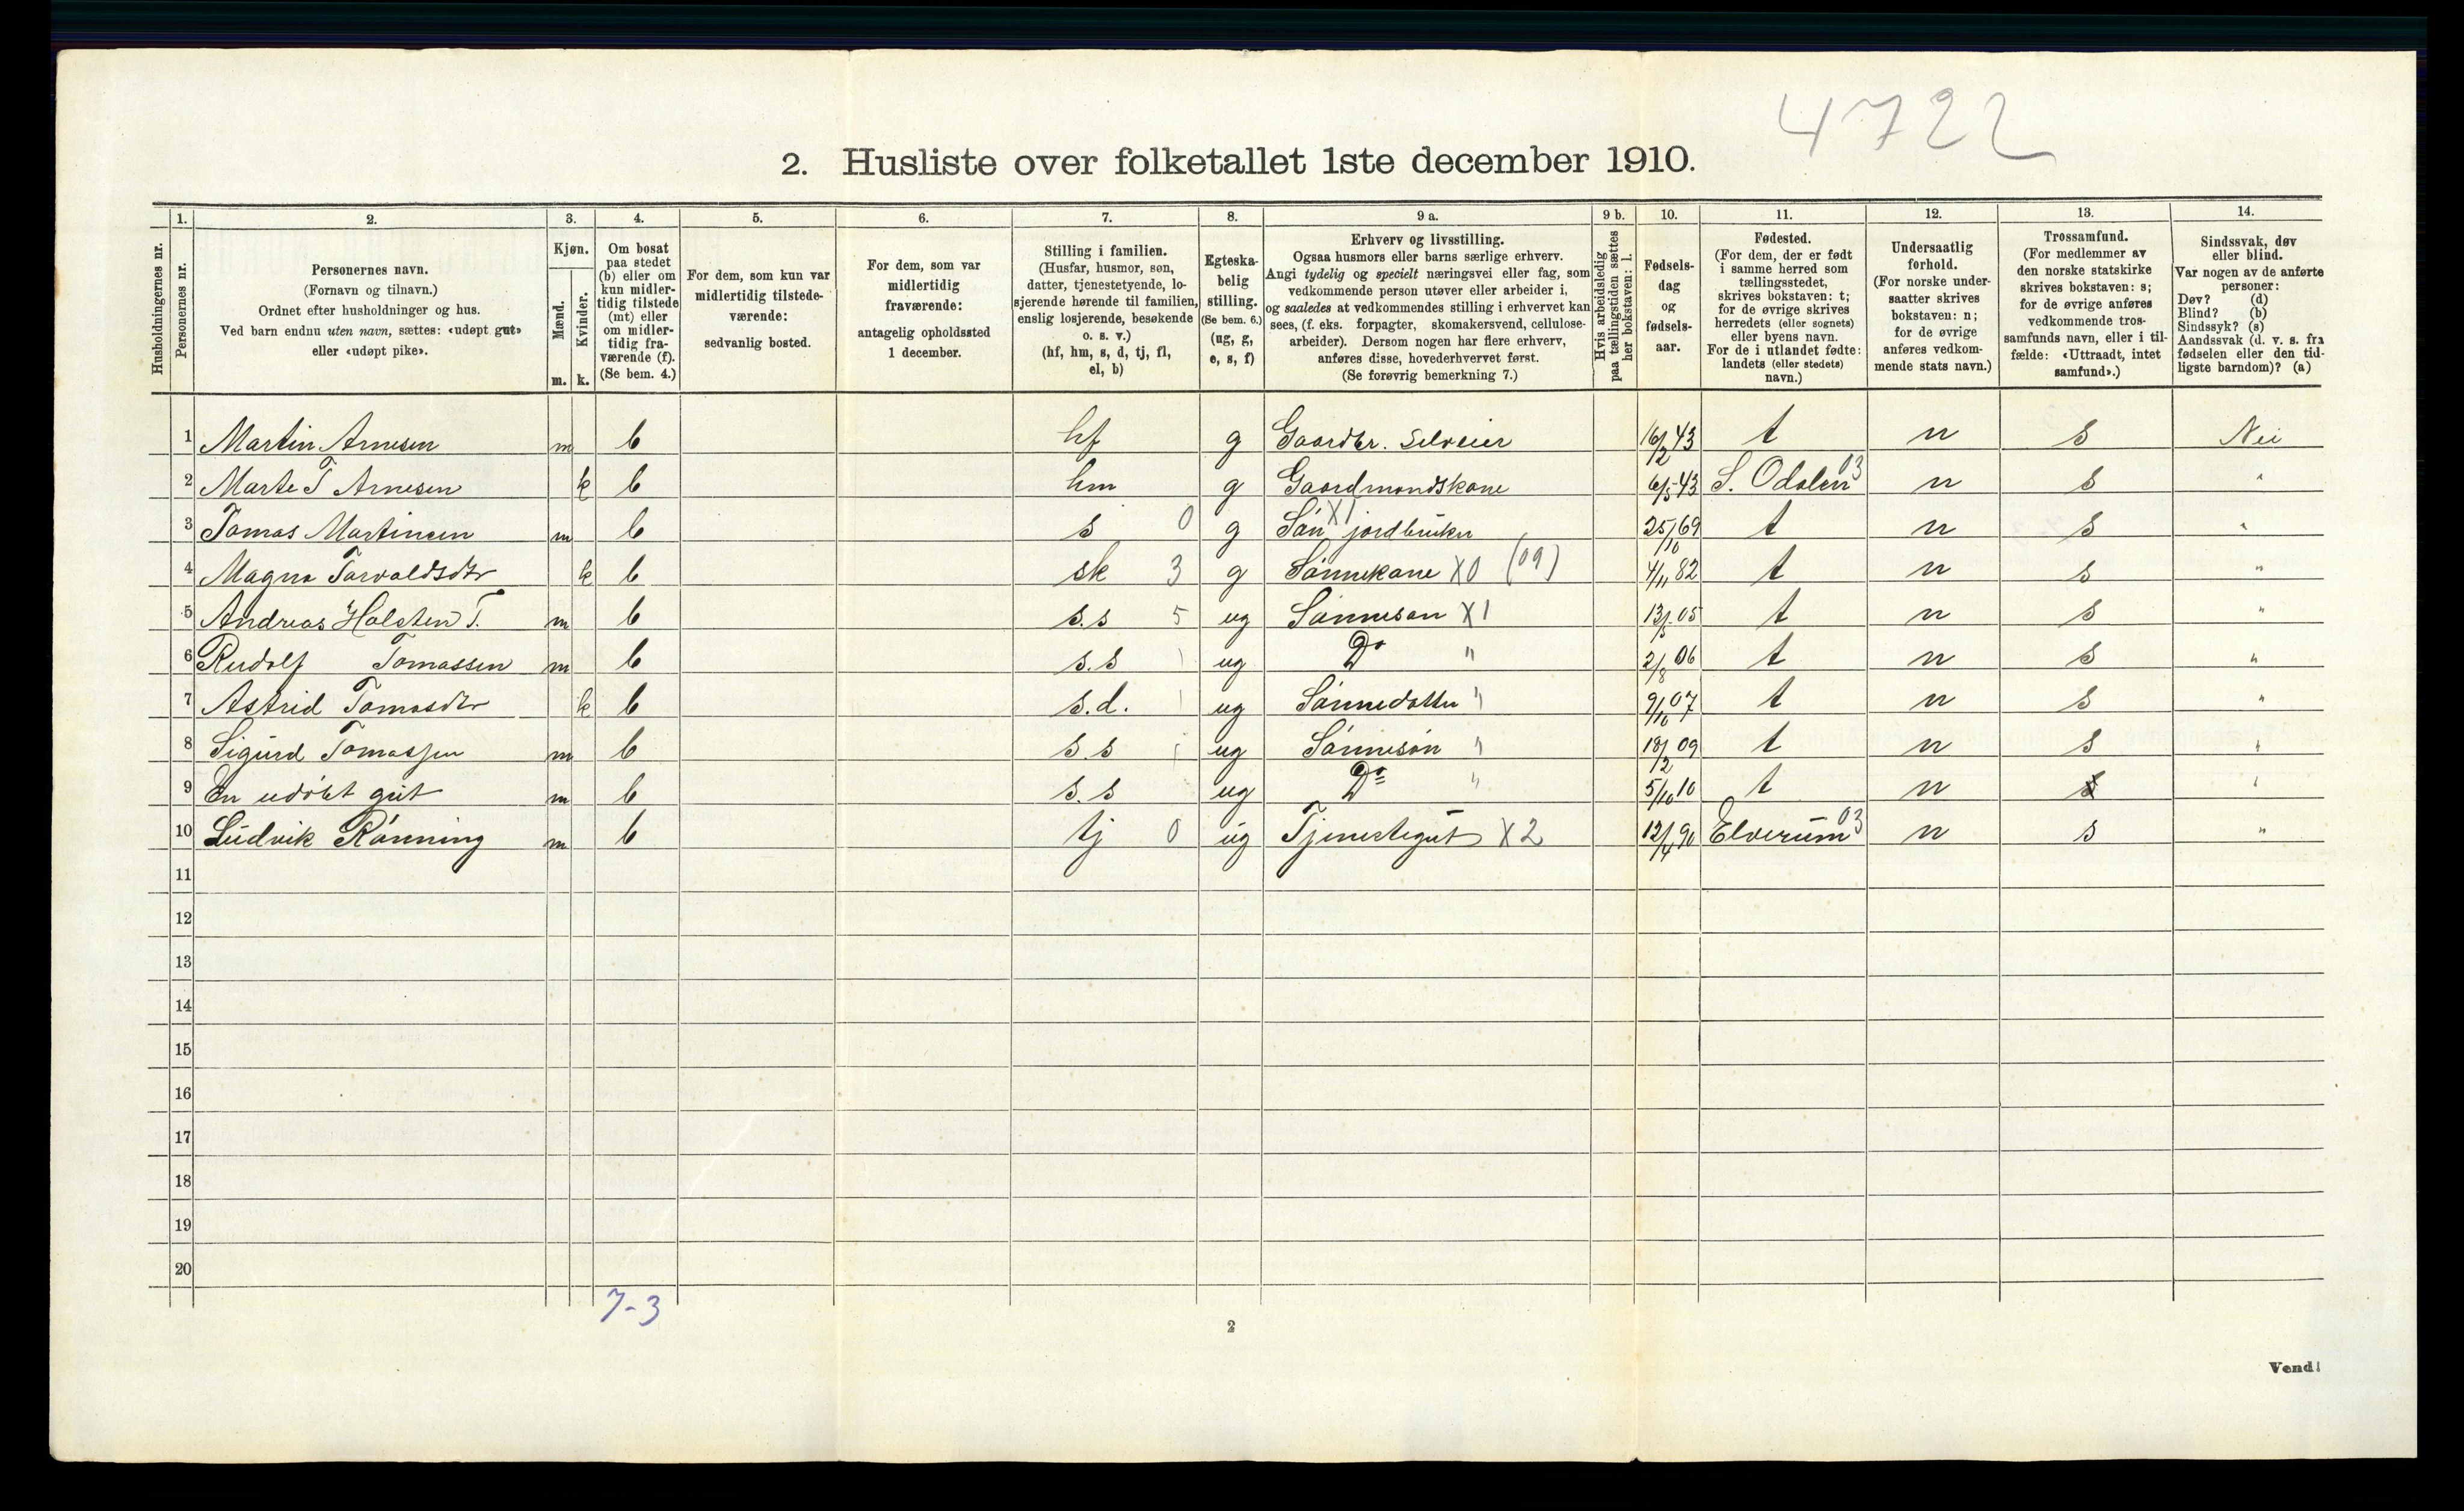 4722
2. Husliste over folketallet 1ste december 1910.
Husholdningernes nr.
1.
Personernes nr.
2.
Personernes navn.
(Fornavn og tilnavn.)
Ordnet efter husholdninger og hus.
Ved barn endnu uten navn, sættes: «udøpt gut»
eller «udøpt pike».
3.
Kjøn.
Mænd.
Kvinder.
m. k.
4.
Om bosat
paa stedet
(b) eller om
kun midler-
tidig tilstede
(mt) eller
om midler-
tidig fra-
værende (f).
(Se bem. 4.)
5.
For dem, som kun var
midlertidig tilstede-
værende:
sedvanlig bosted.
6.
For dem, som var
midlertidig
fraværende:
antagelig opholdssted
1 december.
7.
Stilling i familien.
(Husfar, husmor, søn,
datter, tjenestetyende, lo-
sjerende hørende til familien,
enslig losjerende, besøkende
o. s. v.)
(hf, hm, s, d, tj, fl,
el, b)
8.
Egteska-
belig
stilling.
(Se bem. 6.)
(ug, g,
e, s, f)
9 a.
Erhverv og livsstilling.
Ogsaa husmors eller barns særlige erhverv.
Angi tydelig og specielt næringsvei eller fag, som
vedkommende person utøver eller arbeider i,
og saaledes at vedkommendes stilling i erhvervet kan
sees, (f. eks. forpagter, skomakersvend, cellulose-
arbeider). Dersom nogen har flere erhverv,
anføres disse, hovederhvervet først.
(Se forøvrig bemerkning 7.)
9 b.
Hvis arbeidsledig
paa tællingstiden sættes
her bokstaven: l.
10.
Fødsels-
dag
og
fødsels-
aar.
11.
Fødested.
(For dem, der er født
i samme herred som
tællingsstedet,
skrives bokstaven: t;
for de øvrige skrives
herredets (eller sognets)
eller byens navn.
For de i utlandet fødte:
landets (eller stedets)
navn.)
12.
Undersaatlig
forhold.
(For norske under-
saatter skrives
bokstaven: n;
for de øvrige
anføres vedkom-
mende stats navn.)
13.
Trossamfund.
(For medlemmer av
den norske statskirke
skrives bokstaven: s;
for de øvrige anføres
vedkommende tros-
samfunds navn, eller i til-
fælde: «Uttraadt, intet
samfund».)
14.
Sindssvak, døv
eller blind.
Var nogen av de anførte
personer:
Døv? (d)
Blind? (b)
Sindssyk? (s)
Aandssvak (d. v. s. fra
fødselen eller den tid-
ligste barndom)? (a)
1 Martin Arnesen m b hf g Gaardbr. Selveier 16/2 43 t n s Nei
2 Marte T Arnesen k b hm g Gaardmandskone 6/5 43 S. Odalen 03 n s "
3 Tomas Martinsen m b s 0 g Søn X1 jordbruker 25/10 69 t n s "
4 Magna Torvaldsdtr k b sk 3 g Sønnekone X0 (09) 4/11 82 t n s "
5 Andreas Halsten T. m b s.s 5 ug Sønneson X1 13/5 05 t n s "
6 Rudolf Tomassen m b s.s 1 ug Do " 2/8 06 t n s "
7 Astrid Tomasdtr k b s.d. 1 ug Sønnedatter " 9/10 07 t n s "
8 Sigurd Tomassen m b s.s 1 ug Sønnesøn " 18/2 09 t n s "
9 En udøbt gut m b s.s ug Do " 5/10 10 t n s "
10 Ludvik Rønning m b tj 0 ug Tjenestegut X2 12/4 90 Elverum 03 n s "
11
12
13
14
15
16
17
18
19
20
7-3
2
Vend!